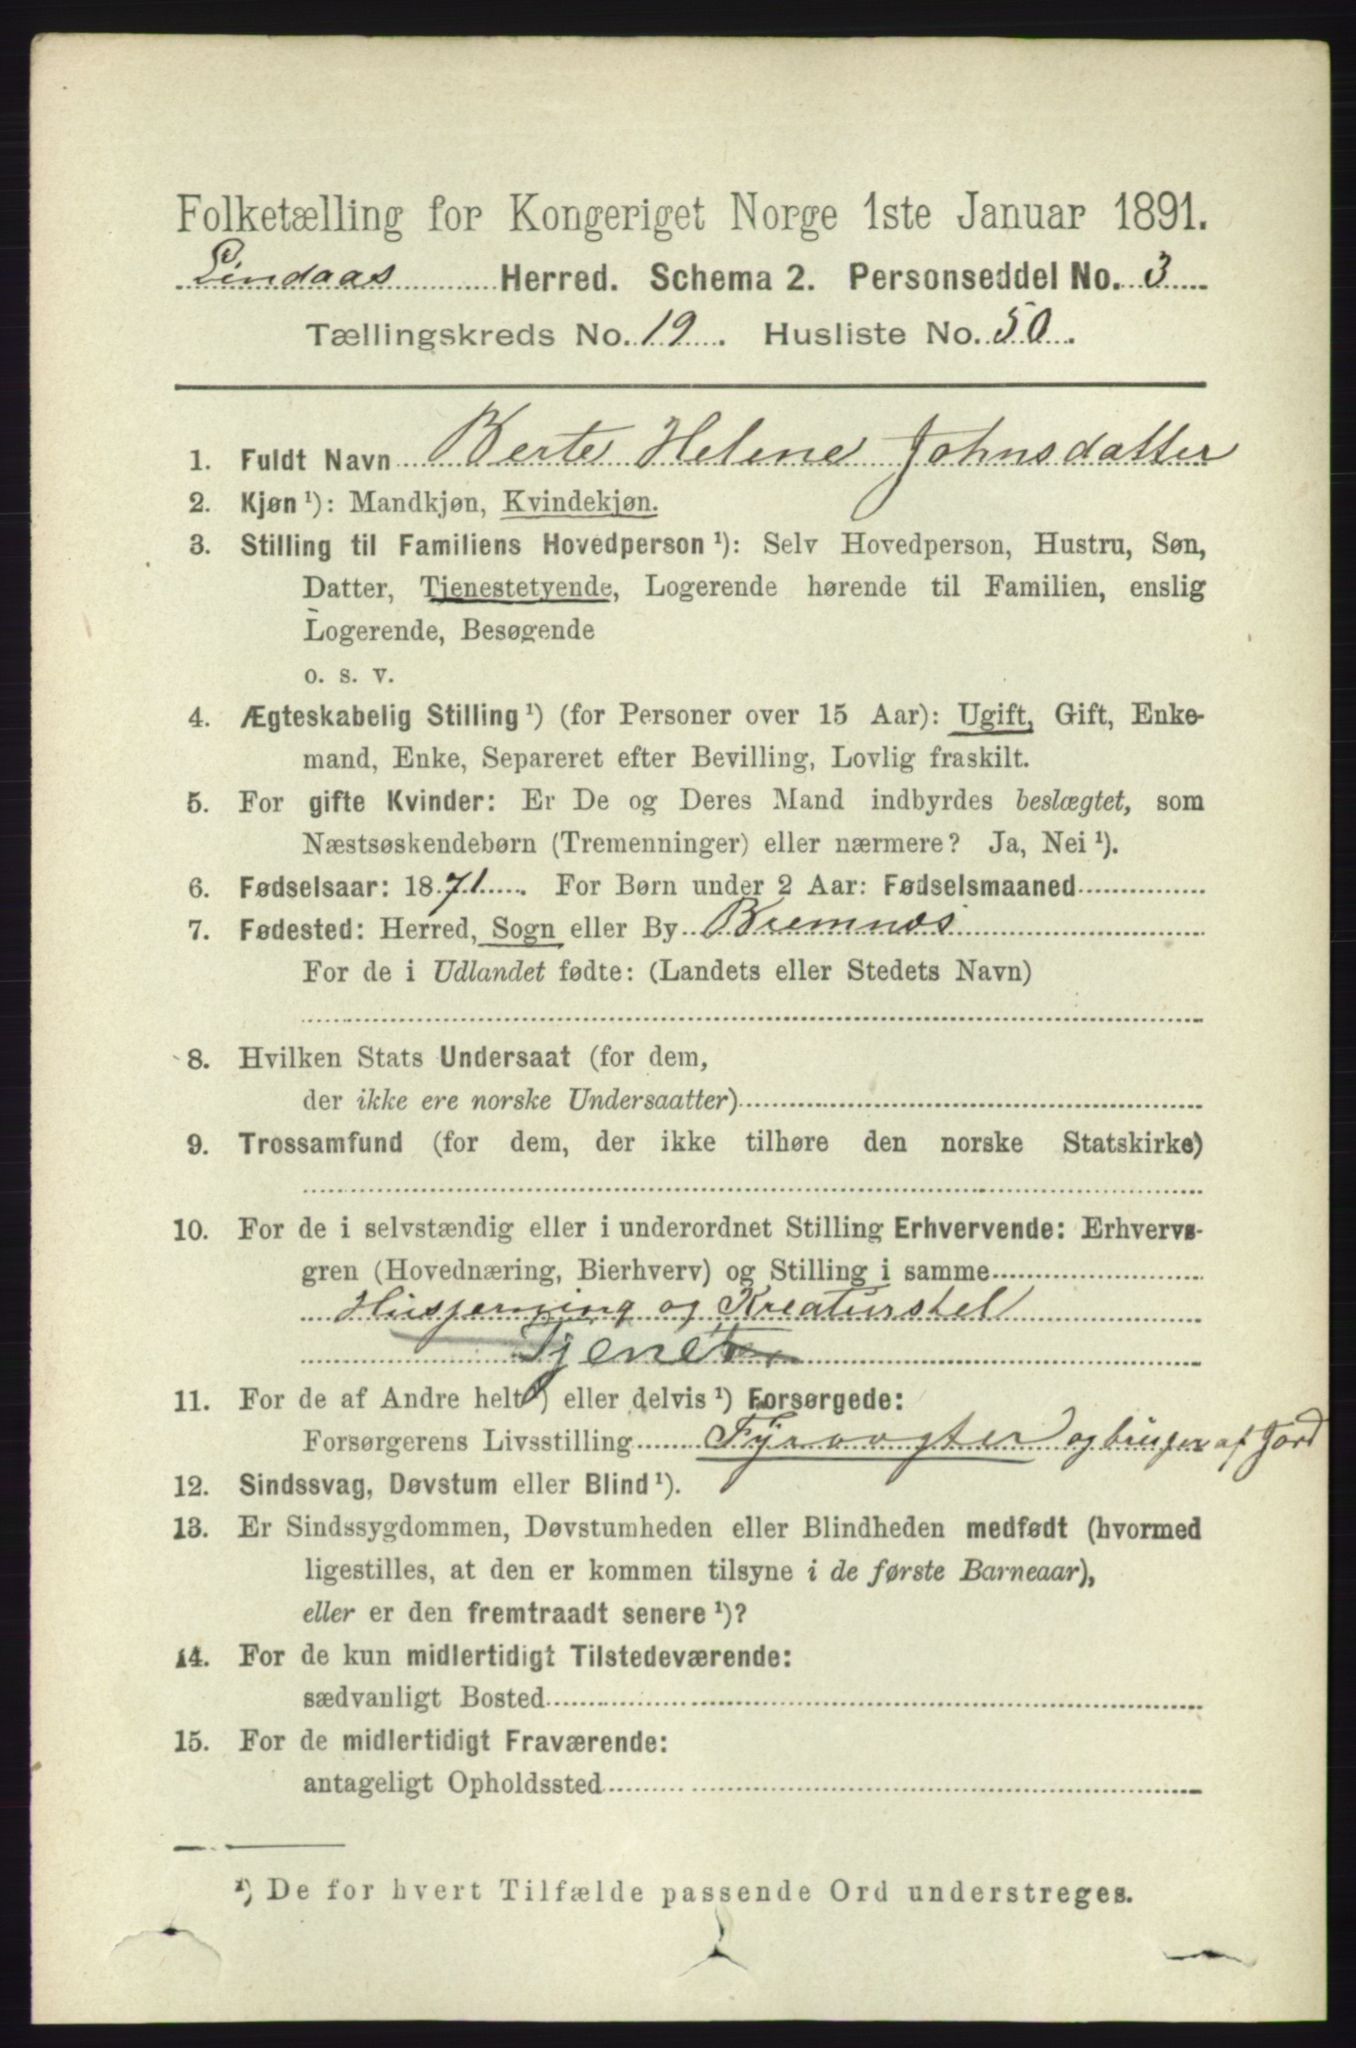 Folketælling for Kongeriget Norge 1ste Januar 1891.
Lindaas Herred. Schema 2. Personseddel No. 3
Tællingskreds No. 19. Husliste No. 50.
1. Fuldt Navn Berte Helene Johnsdatter
2. Kjøn ¹): Mandkjøn, Kvindekjøn.
3. Stilling til Familiens Hovedperson ¹): Selv Hovedperson, Hustru, Søn,
Datter, Tjenestetyende, Logerende hørende til Familien, enslig
Logerende, Besøgende
o. s. v.
4. Ægteskabelig Stilling ¹) (for Personer over 15 Aar): Ugift, Gift, Enke-
mand, Enke, Separeret efter Bevilling, Lovlig fraskilt.
5. For gifte Kvinder: Er De og Deres Mand indbyrdes beslægtet, som
Næstsøskendebørn (Tremenninger) eller nærmere? Ja, Nei ¹).
6. Fødselsaar: 1871. For Børn under 2 Aar: Fødselsmaaned
7. Fødested: Herred, Sogn eller By Bremnes
For de i Udlandet fødte: (Landets eller Stedets Navn)
8. Hvilken Stats Undersaat (for dem,
der ikke ere norske Undersaatter)
9. Trossamfund (for dem, der ikke tilhøre den norske Statskirke)
10. For de i selvstændig eller i underordnet Stilling Erhvervende: Erhvervs-
gren (Hovednæring, Bierhverv) og Stilling i samme
Husgerning og Kreaturstel
11. For de af Andre helt ¹) eller delvis ¹) Forsørgede:
Forsørgerens Livsstilling Fyrvogter og bruger af Jord
12. Sindssvag, Døvstum eller Blind ¹).
13. Er Sindssygdommen, Døvstumheden eller Blindheden medfødt (hvormed
ligestilles, at den er kommen tilsyne i de første Barneaar),
eller er den fremtraadt senere ¹)?
14. For de kun midlertidigt Tilstedeværende:
sædvanligt Bosted
15. For de midlertidigt Fraværende:
antageligt Opholdssted
¹) De for hvert Tilfælde passende Ord understreges.